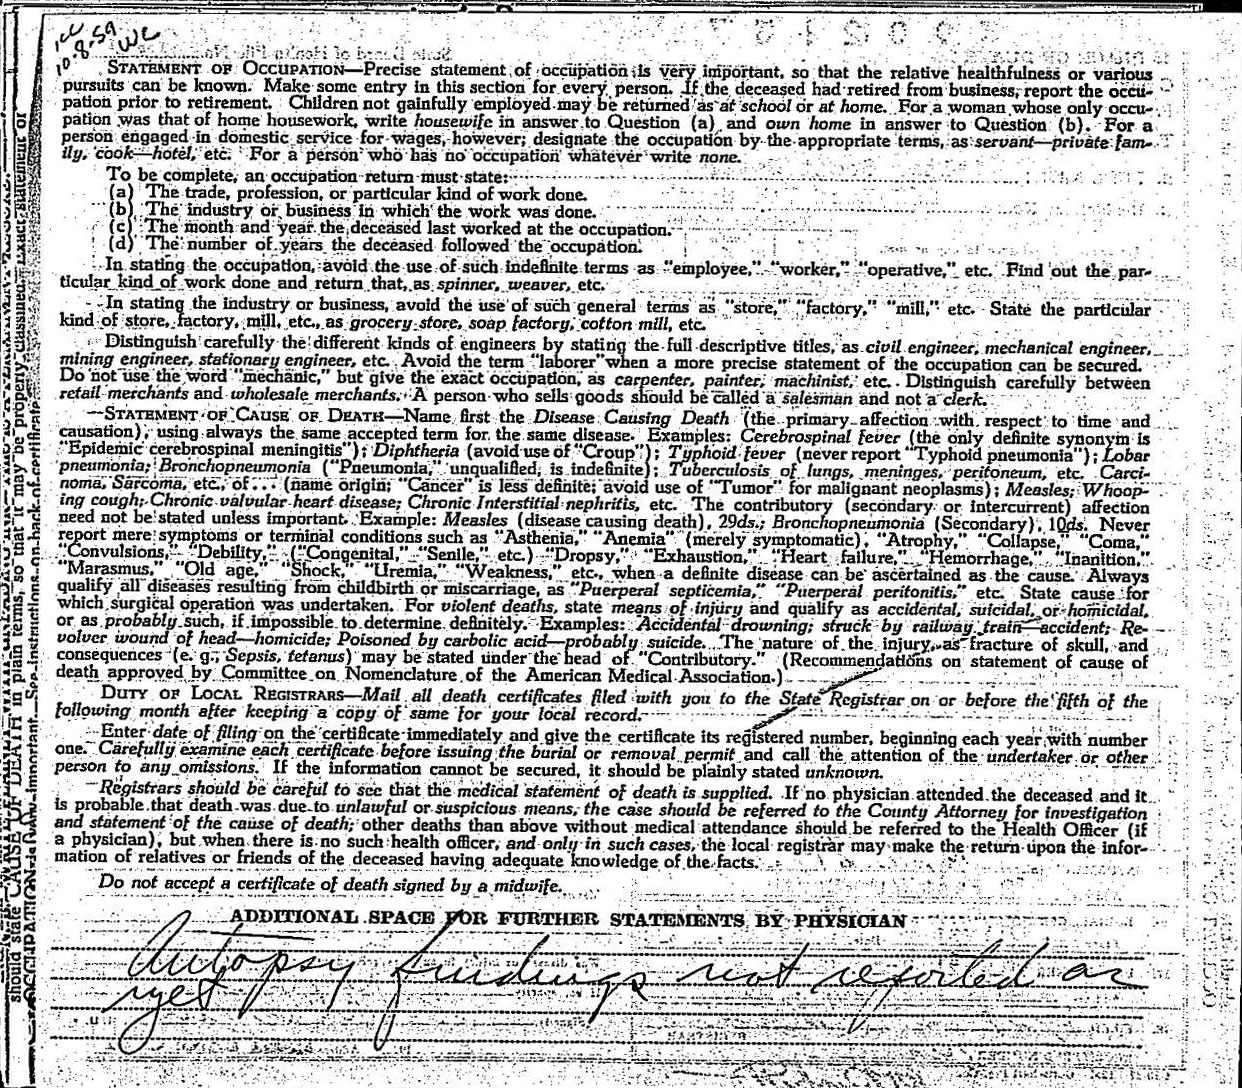 10-8-59
WC
STATEMENT OF OCCUPATION—Precise statement of occupation is very important, so that the relative healthfulness or various
pursuits can be known. Make some entry in this section for every person. If the deceased had retired from business, report the occu-
pation prior to retirement. Children not gainfully employed may be returned as at school or at home. For a woman whose only occu-
pation was that of home housework, write housewife in answer to Question (a) and own home in answer to Question (b). For a
person engaged in domestic service for wages, however; designate the occupation by the appropriate terms, as servant—private fam-
ily, cook—hotel, etc. For a person who has no occupation whatever write none.
To be complete, an occupation return must state:
(a) The trade, profession, or particular kind of work done.
(b) The industry or business in which the work was done.
(c) The month and year the deceased last worked at the occupation.
(d) The number of years the deceased followed the occupation.
In stating the occupation, avoid the use of such indefinite terms as "employee," "worker," "operative," etc. Find out the par-
ticular kind of work done and return that, as spinner, weaver, etc.
In stating the industry or business, avoid the use of such general terms as "store," "factory," "mill," etc. State the particular
kind of store, factory, mill, etc., as grocery store, soap factory, cotton mill, etc.
Distinguish carefully the different kinds of engineers by stating the full descriptive titles, as civil engineer, mechanical engineer,
mining engineer, stationary engineer, etc. Avoid the term "laborer" when a more precise statement of the occupation can be secured.
Do not use the word "mechanic," but give the exact occupation, as carpenter, painter, machinist, etc. Distinguish carefully between
retail merchants and wholesale merchants. A person who sells goods should be called a salesman and not a clerk.
STATEMENT OF CAUSE OF DEATH—Name first the Disease Causing Death (the primary affection with respect to time and
causation), using always the same accepted term for the same disease. Examples: Cerebrospinal fever (the only definite synonym is
"Epidemic cerebrospinal meningitis"); Diphtheria (avoid use of "Croup"); Typhoid fever (never report "Typhoid pneumonia"); Lobar
pneumonia; Bronchopneumonia ("Pneumonia," unqualified, is indefinite); Tuberculosis of lungs, meninges, peritoneum, etc. Carci-
noma, Sarcoma, etc., of... (name origin; "Cancer" is less definite; avoid use of "Tumor" for malignant neoplasms); Measles; Whoop-
ing cough; Chronic valvular heart disease; Chronic Interstitial nephritis, etc. The contributory (secondary or intercurrent) affection
need not be stated unless important. Example: Measles (disease causing death), 29ds.; Bronchopneumonia (Secondary), 10ds. Never
report mere symptoms or terminal conditions such as "Asthenia," "Anemia" (merely symptomatic), "Atrophy," "Collapse," "Coma,"
"Convulsions," "Debility," ("Congenital," "Senile," etc.) "Dropsy," "Exhaustion," "Heart failure," "Hemorrhage," "Inanition,"
"Marasmus," "Old age," "Shock," "Uremia," "Weakness," etc., when a definite disease can be ascertained as the cause. Always
qualify all diseases resulting from childbirth or miscarriage, as "Puerperal septicemia," "Puerperal peritonitis," etc. State cause for
which surgical operation was undertaken. For violent deaths, state means of injury and qualify as accidental, suicidal, or homicidal,
or as probably such, if impossible to determine definitely. Examples: Accidental drowning; struck by railway train—accident; Re-
volver wound of head—homicide; Poisoned by carbolic acid—probably suicide. The nature of the injury, as fracture of skull, and
consequences (e. g., Sepsis, tetanus) may be stated under the head of "Contributory." (Recommendations on statement of cause of
death approved by Committee on Nomenclature of the American Medical Association.)
DUTY OF LOCAL REGISTRARS—Mail all death certificates filed with you to the State Registrar on or before the fifth of the
following month after keeping a copy of same for your local record.
Enter date of filing on the certificate immediately and give the certificate its registered number, beginning each year with number
one. Carefully examine each certificate before issuing the burial or removal permit and call the attention of the undertaker or other
person to any omissions. If the information cannot be secured, it should be plainly stated unknown.
Registrars should be careful to see that the medical statement of death is supplied. If no physician attended the deceased and it
is probable that death was due to unlawful or suspicious means, the case should be referred to the County Attorney for investigation
and statement of the cause of death; other deaths than above without medical attendance should be referred to the Health Officer (if
a physician), but when there is no such health officer, and only in such cases, the local registrar may make the return upon the infor-
mation of relatives or friends of the deceased having adequate knowledge of the facts.
Do not accept a certificate of death signed by a midwife.
ADDITIONAL SPACE FOR FURTHER STATEMENTS BY PHYSICIAN
Autopsy findings not reported as
yet
should state CAUSE OF DEATH in plain terms, so that it may be properly classified. Exact statement of
OCCUPATION is very important. See instructions on back of certificate.